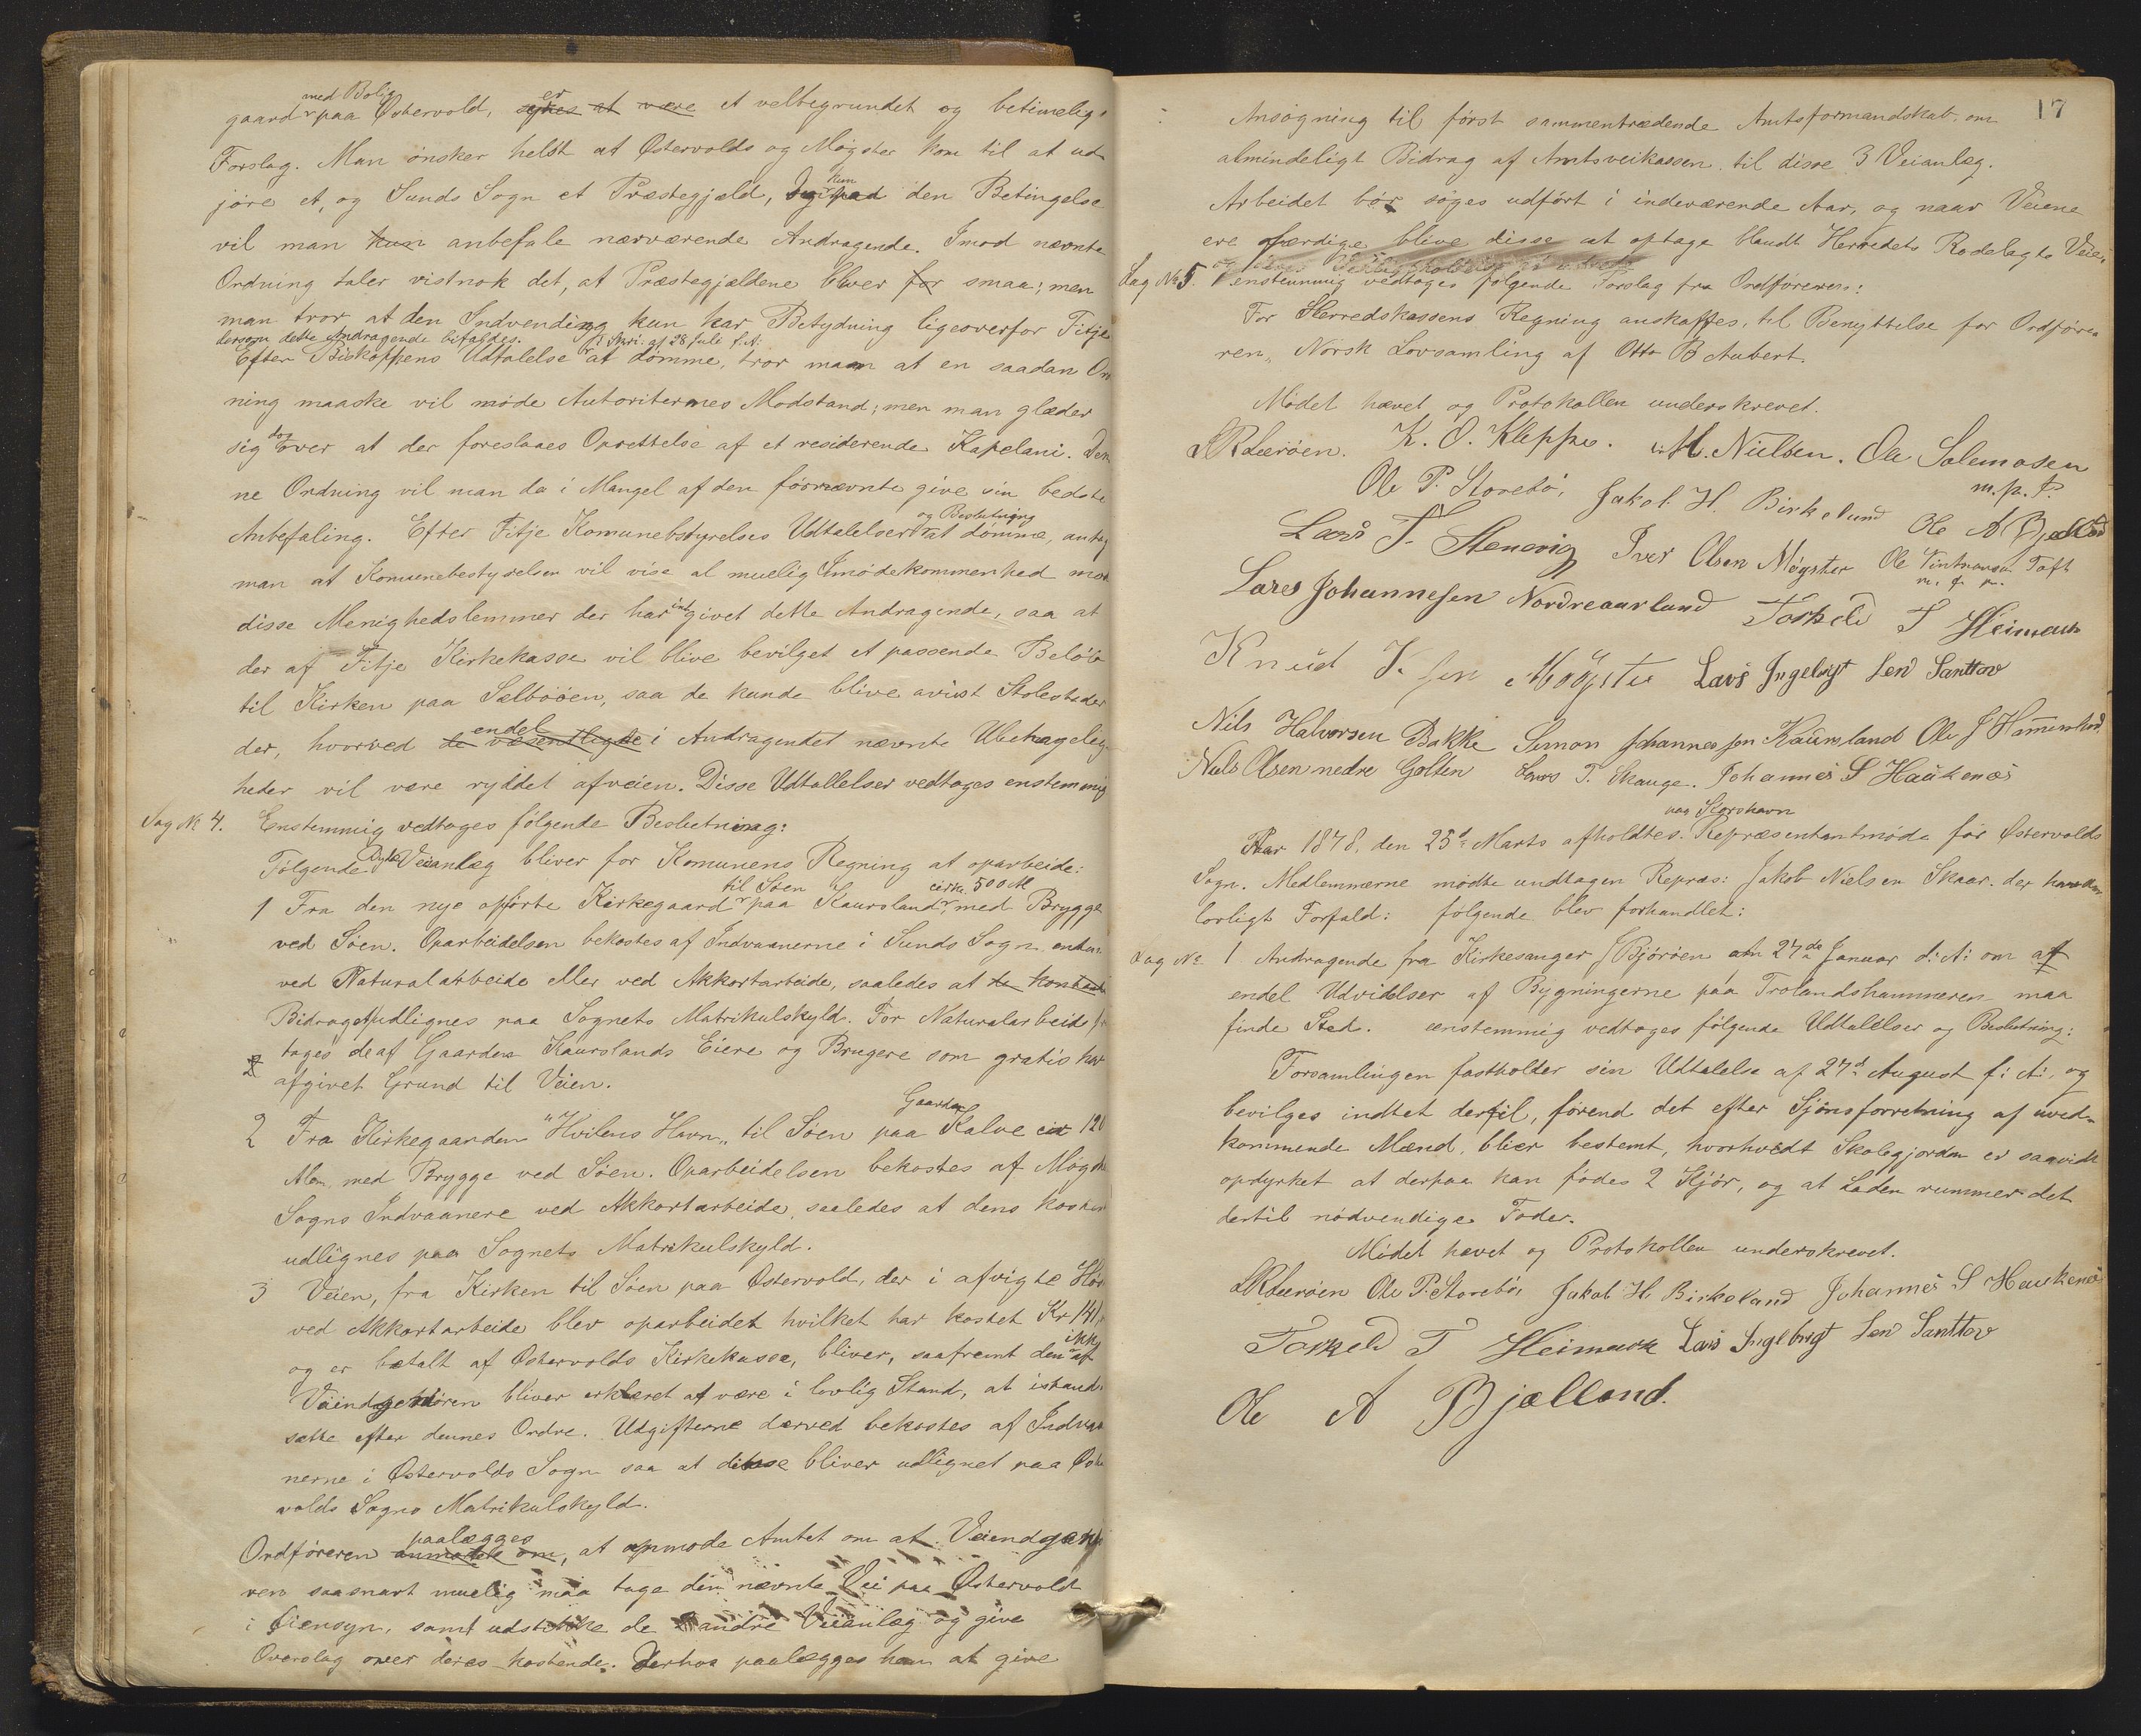 med Bolig er
gaard paa Østervold, synes at være et velbegrundet og betimelig
Forslag. Man ønsker helst at Østervolds og Møgster kom til at ud-
jøre et, og Sunds Sogn et Præstegjæld, kun paa den Betingelse
vil man kun anbefale nærværende Andragende. Imod nævnte
Ordning taler vistnok det, at Præstegjældene bliver for smaa; men
man tror at den Indvending kun har Betydning ligeoverfor Fitje
dersom dette Andragende bifaldes. i Skri. af 28 Juli f. A.
Efter Biskoppens Udtalelse at dømme, tror man at en saadan Ord
ning maaske vil møde Autoriternes Modstand; men man glæder
sig dog over at der foreslaaes Oprettelse af et residerende Kapelani. Den
ne Ordning vil man da i Mangel af den førnævnte give sin bedste
og Beslutning
Anbefaling. Efter Fitje Komunebstyrelses Udtalelser at dømme, antag
man at Komunebestyrelsen vil vise al muelig Imødekommenhed mod
disse Menighedslemmer der har indgivet dette Andragende, saa at
der af Fitje Kirkekasse vil blive bevilget et passende Beløb
til Kirken paa Selbøøen, saa de kunde blive anvist Stolestader
der, hvorved de væsentligste endel i Andragendet nævnte Ubehagelig-
heder vil være ryddet afveien. Disse Udtallelser vedtages enstemmig
Sag № 4. Enstemmig vedtoges følgende Beslutning:
Følgende Bygde Veianlæg bliver for Komunens Regning at oparbeide:
til Søen cirka 500 Al
1 Fra den nye opførte Kirkegaard paa Kausland, med Brygge
ved Søen. Oparbeidelsen bekostes af Indvaanerne i Sunds Sogn enten
ved Naturalarbeide eller ved Akkortarbeide, saaledes at de kontante
Bidraget udlignes paa Sognets Matrikulskyld. For Naturalarbeide fr
tages de af Gaarden Kauslands Eiere og Brugere som gratis har
afgivet Grund til Veien.
Gaarden
2 Fra Kirkegaarden "Hvilens Havn" til Søen paa Kalve cir 120
Alen, med Brygge ved Søen. Oparbeidelsen bekostes af Møgster
Sogns Indvaanere ved Akkortarbeide, saaledes at dens kostende
udlignes paa Sognets Matrikulskyld.
3 Veien, fra Kirken til Søen paa Østervold, der i afvigte Høst
ved Akkortarbeide blev oparbeidet hvilket har kostet Kr 141,
og er betalt af Østervolds Kirkekasse, bliver, saafremt den ikke af
Veindgenøren bliver erklæret at være i lovlig Stand, at istand-
sætte efter dennes Ordre. Udgifterne derved bekostes af Indvaa
nerne i Østervolds Sogn saa at disse bliver udlignet paa Øster
volds Sogns Matrikulskyld.
paalægges
Ordføreren anmodede om, at anmode Amtet om at Veiendgeniø
ren saasnart muelig maa tage den nævnte Vei paa Østervold
i Øiensyn, samt udstikke de 2 andre Veianlæg og give
Overslag over deres kostende. Derhos paalægges ham at give
17
Ansøgning til først sammentrædende Amtsformandskab om
almindeligt Bidrag af Amtsveikassen til disse 3 Veianlæg.
Arbeidet bør søges udført i indeværende Aar, og naar Veiene
ere færdige blive disse at optage blandt Herredets Rodelagte Veie,
Sag № 5. enstemmig vedtoges følgende Forslag fra Ordføreren:
For Herredskassens Regning anskaffes, til Benyttelse for Ordføre-
ren, Norsk Lovsamling af Otto B Aubert.
Mødet hævet og Protokollen underskrevet.
LRLerøen. K. O. Kleppe. M. Nielsen. Ole Salemosen
m. p. P.
Ole P. Storebø, Jakob H. Birkelund Ole A Bjelland
Lars T. Stenevig Iver Olsen Møgster Ole Toft
m. f. p.
Lars Johannesen Nordreaarland Torkeld T Heimark
Knud K. sen Møgster Lars Ingebrigt Sen Santtov
Nils Halvorsen Bakke Simon Johannessen Kausland Ole J Hammerhod
Niels Olsen nedre Golten Lars T. Skauge. Johannes S Haukenæs
paa Storshavn
Aar 1878. den 25de Marts afholdtes Repræsentantmøde for Østervolds
Sogn. Medlemmerne mødte undtagen Repræs: Jakob Nielsen Skaar. der har
lovligt Forfald: følgende blev forhandlet:
Sag № 1 Andragende fra Kirkesanger J Bjørøen am 27de Januar d: A: om at
endel Udvidelser af Bygningerne paa Trolandshammeren maa
finde Sted. enstemmig vedtoges følgende Udtalelser og Beslutning:
Forsamlingen fastholder sin Udtalelse af 27d August f: A:, og
bevilges indtet dertil, førend det efter Sjønsforretning af uved-
kommende Mænd, blier bestemt, hvorhvidt Skolejorden er saavidt
opdyrket at derpaa kan fødes 2 Kjør, og at Laden rummer det
dertil nødvendige Foder.
Mødet hævet og Protokollen underskrevet.
LRLerøen Ole P. Storebø, Jakob H. Birkeland Johannes S Haukenæs
Torkeld T Heimark Lars Ingebrigt Sen Santtov
Ole A Bjelland.